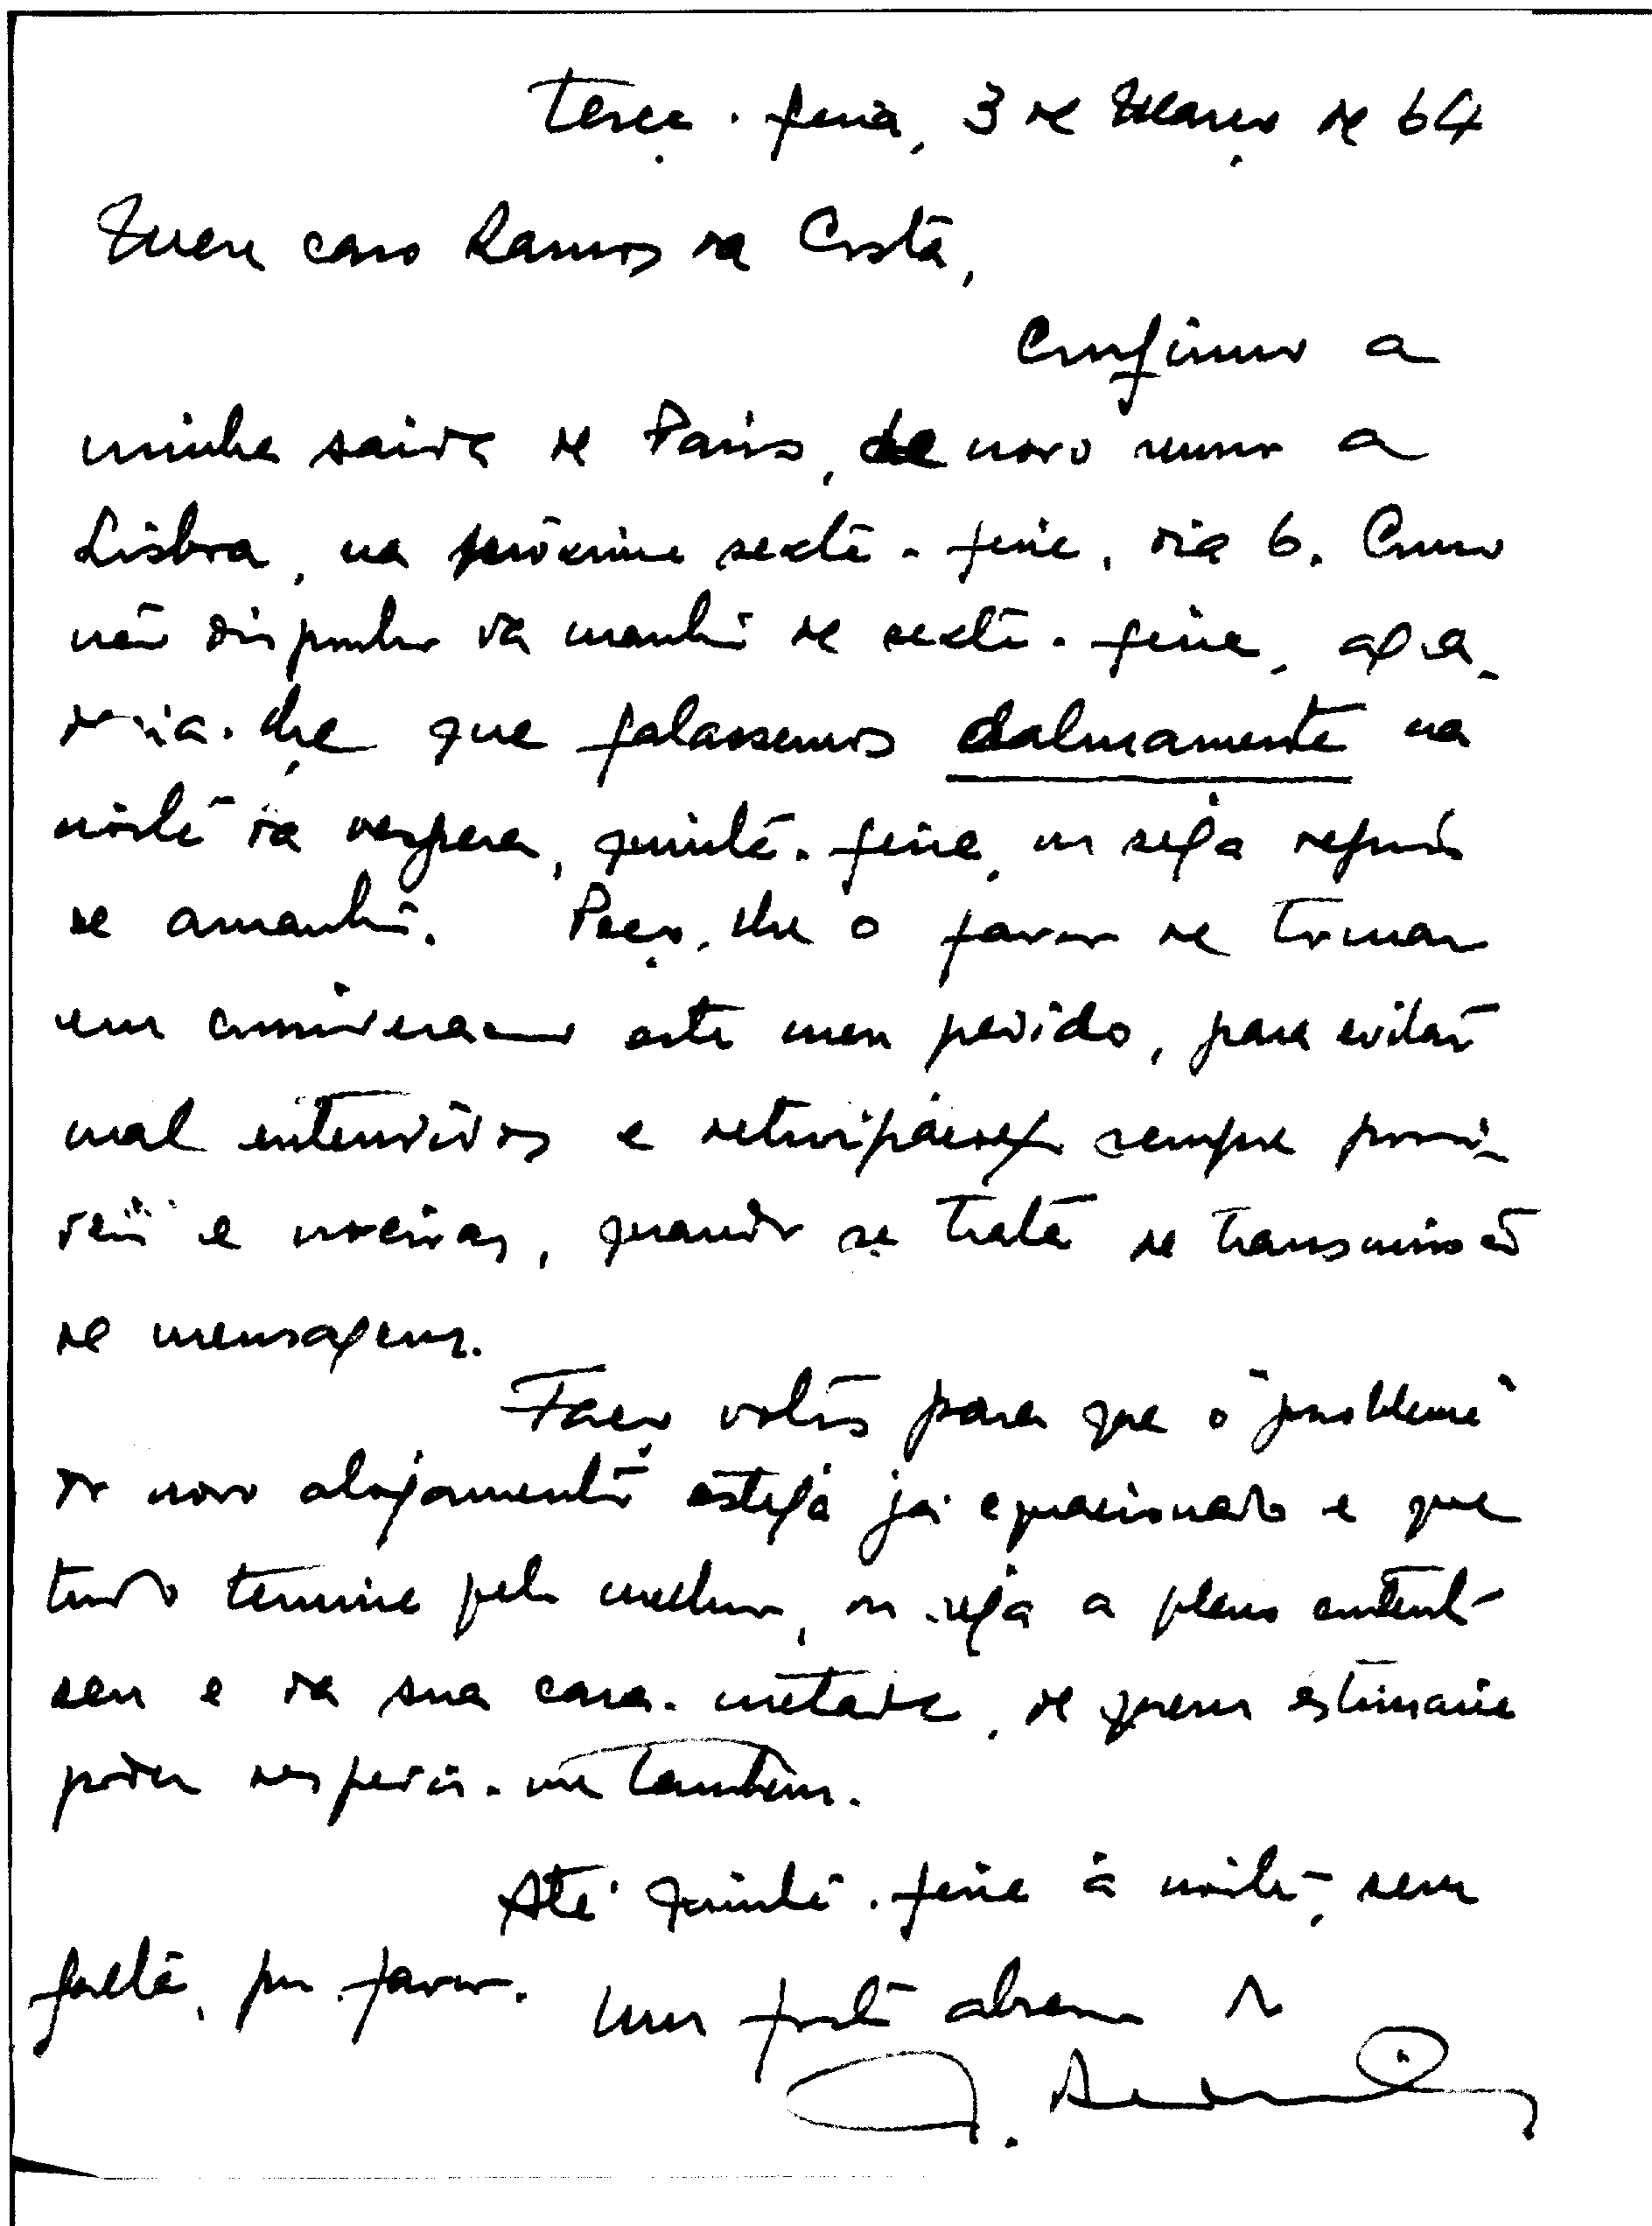 Terça-feira, 3 de Março de 64
Meu caro Ramos da Costa,
Confirmo a
minha saída de Paris, de novo rumo a
Lisboa, na próxima sexta-feira, dia 6. Como
não disponho da manhã de sexta-feira, agra-
decia-lhe que falassemos calmamente na
noite da vespera, quinta-feira, ou seja depois
de amanhã. Peço-lhe o favor de tomar
em consideração este meu pedido, para evitar
mal entendidos e deturpações sempre possi-
veis e nocivas, quando se trata de transmissão
de mensagens.
Faço votos para que o "problema"
do novo alojamento esteja já equacionado e que
tudo termine pelo melhor, ou seja a pleno contento
seu e da sua cara-metade, de quem estimaria
poder despedir-me também.
Até quinta-feira à noite, sem
falta, por favor. Um forte abraço do